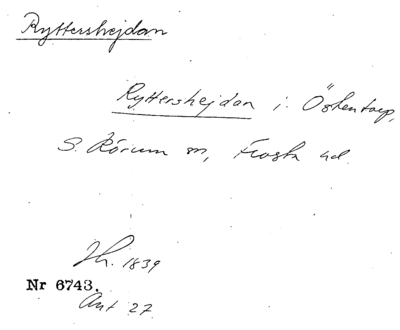 Ryttershejdan
Ryttershejdan i. Östentorp,
S. Rörum sn, Frosta hd.
Jh. 1839
Nr 6743.
Ant 27